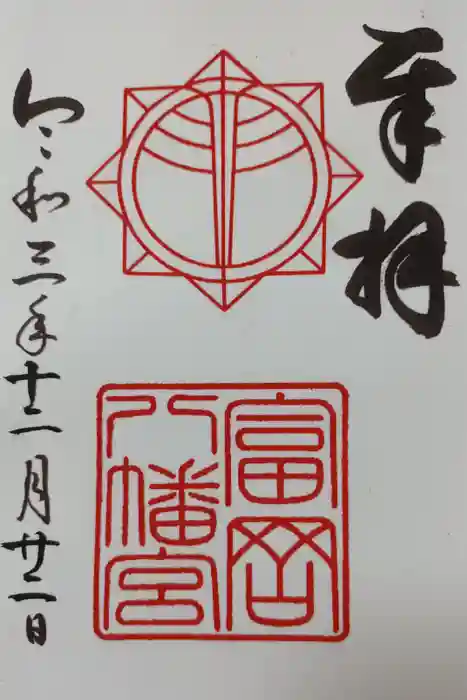 奉拝
富岡
八幡宮
令和三年十二月廿二日